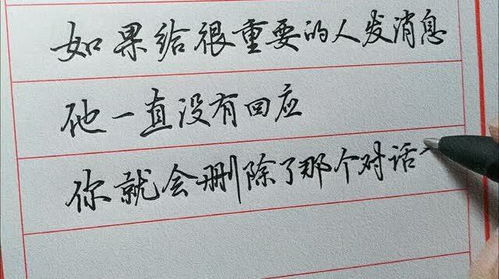 如果给很重要的人发消息
他一直没有回应
你就会删除了那个对话